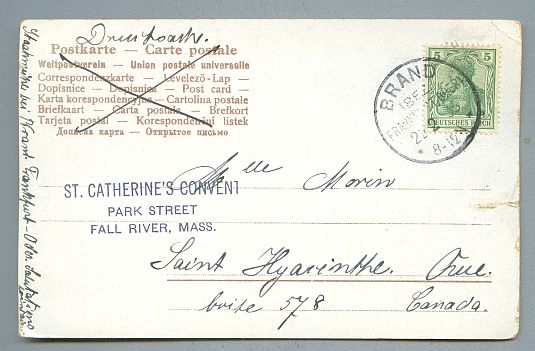 Drucksache.
Postkarte — Carte postale
Weltpostverein — Union postale universelle
Correspondenzkarte — Levelező-Lap —
Dopisnice — Dopisnica — Post card —
Karta korespondencyjna — Cartolina postale
Briefkaart — Carta postale — Brefkort
Tarjeta postal — Korespondenční listek
Дописна карта — Открытое письмо
5 5
DEUTSCHES REICH
BRAND
8-12
Mlle Morin
ST. CATHERINE'S CONVENT
PARK STREET
FALL RIVER, MASS.
Saint Hyacinthe. Que.
boite 578 Canada.
bei Brand Frankfurt-Oder